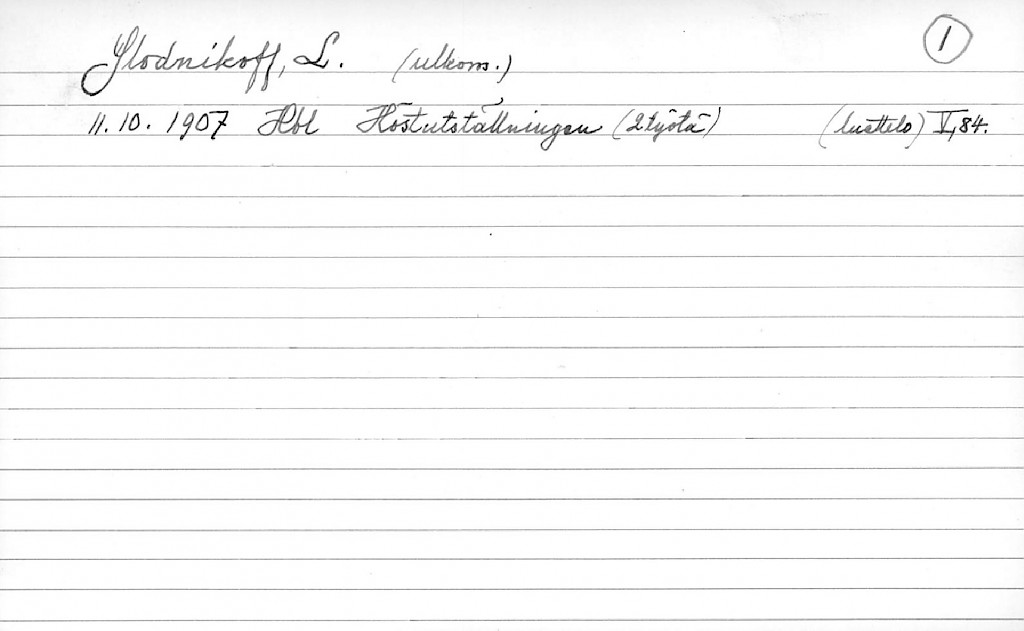 Slodnikoff, L. (ulkom.) 1
11.10.1907 Hbl Höstutställningen (2 työtä) (luettelo) V, 84.